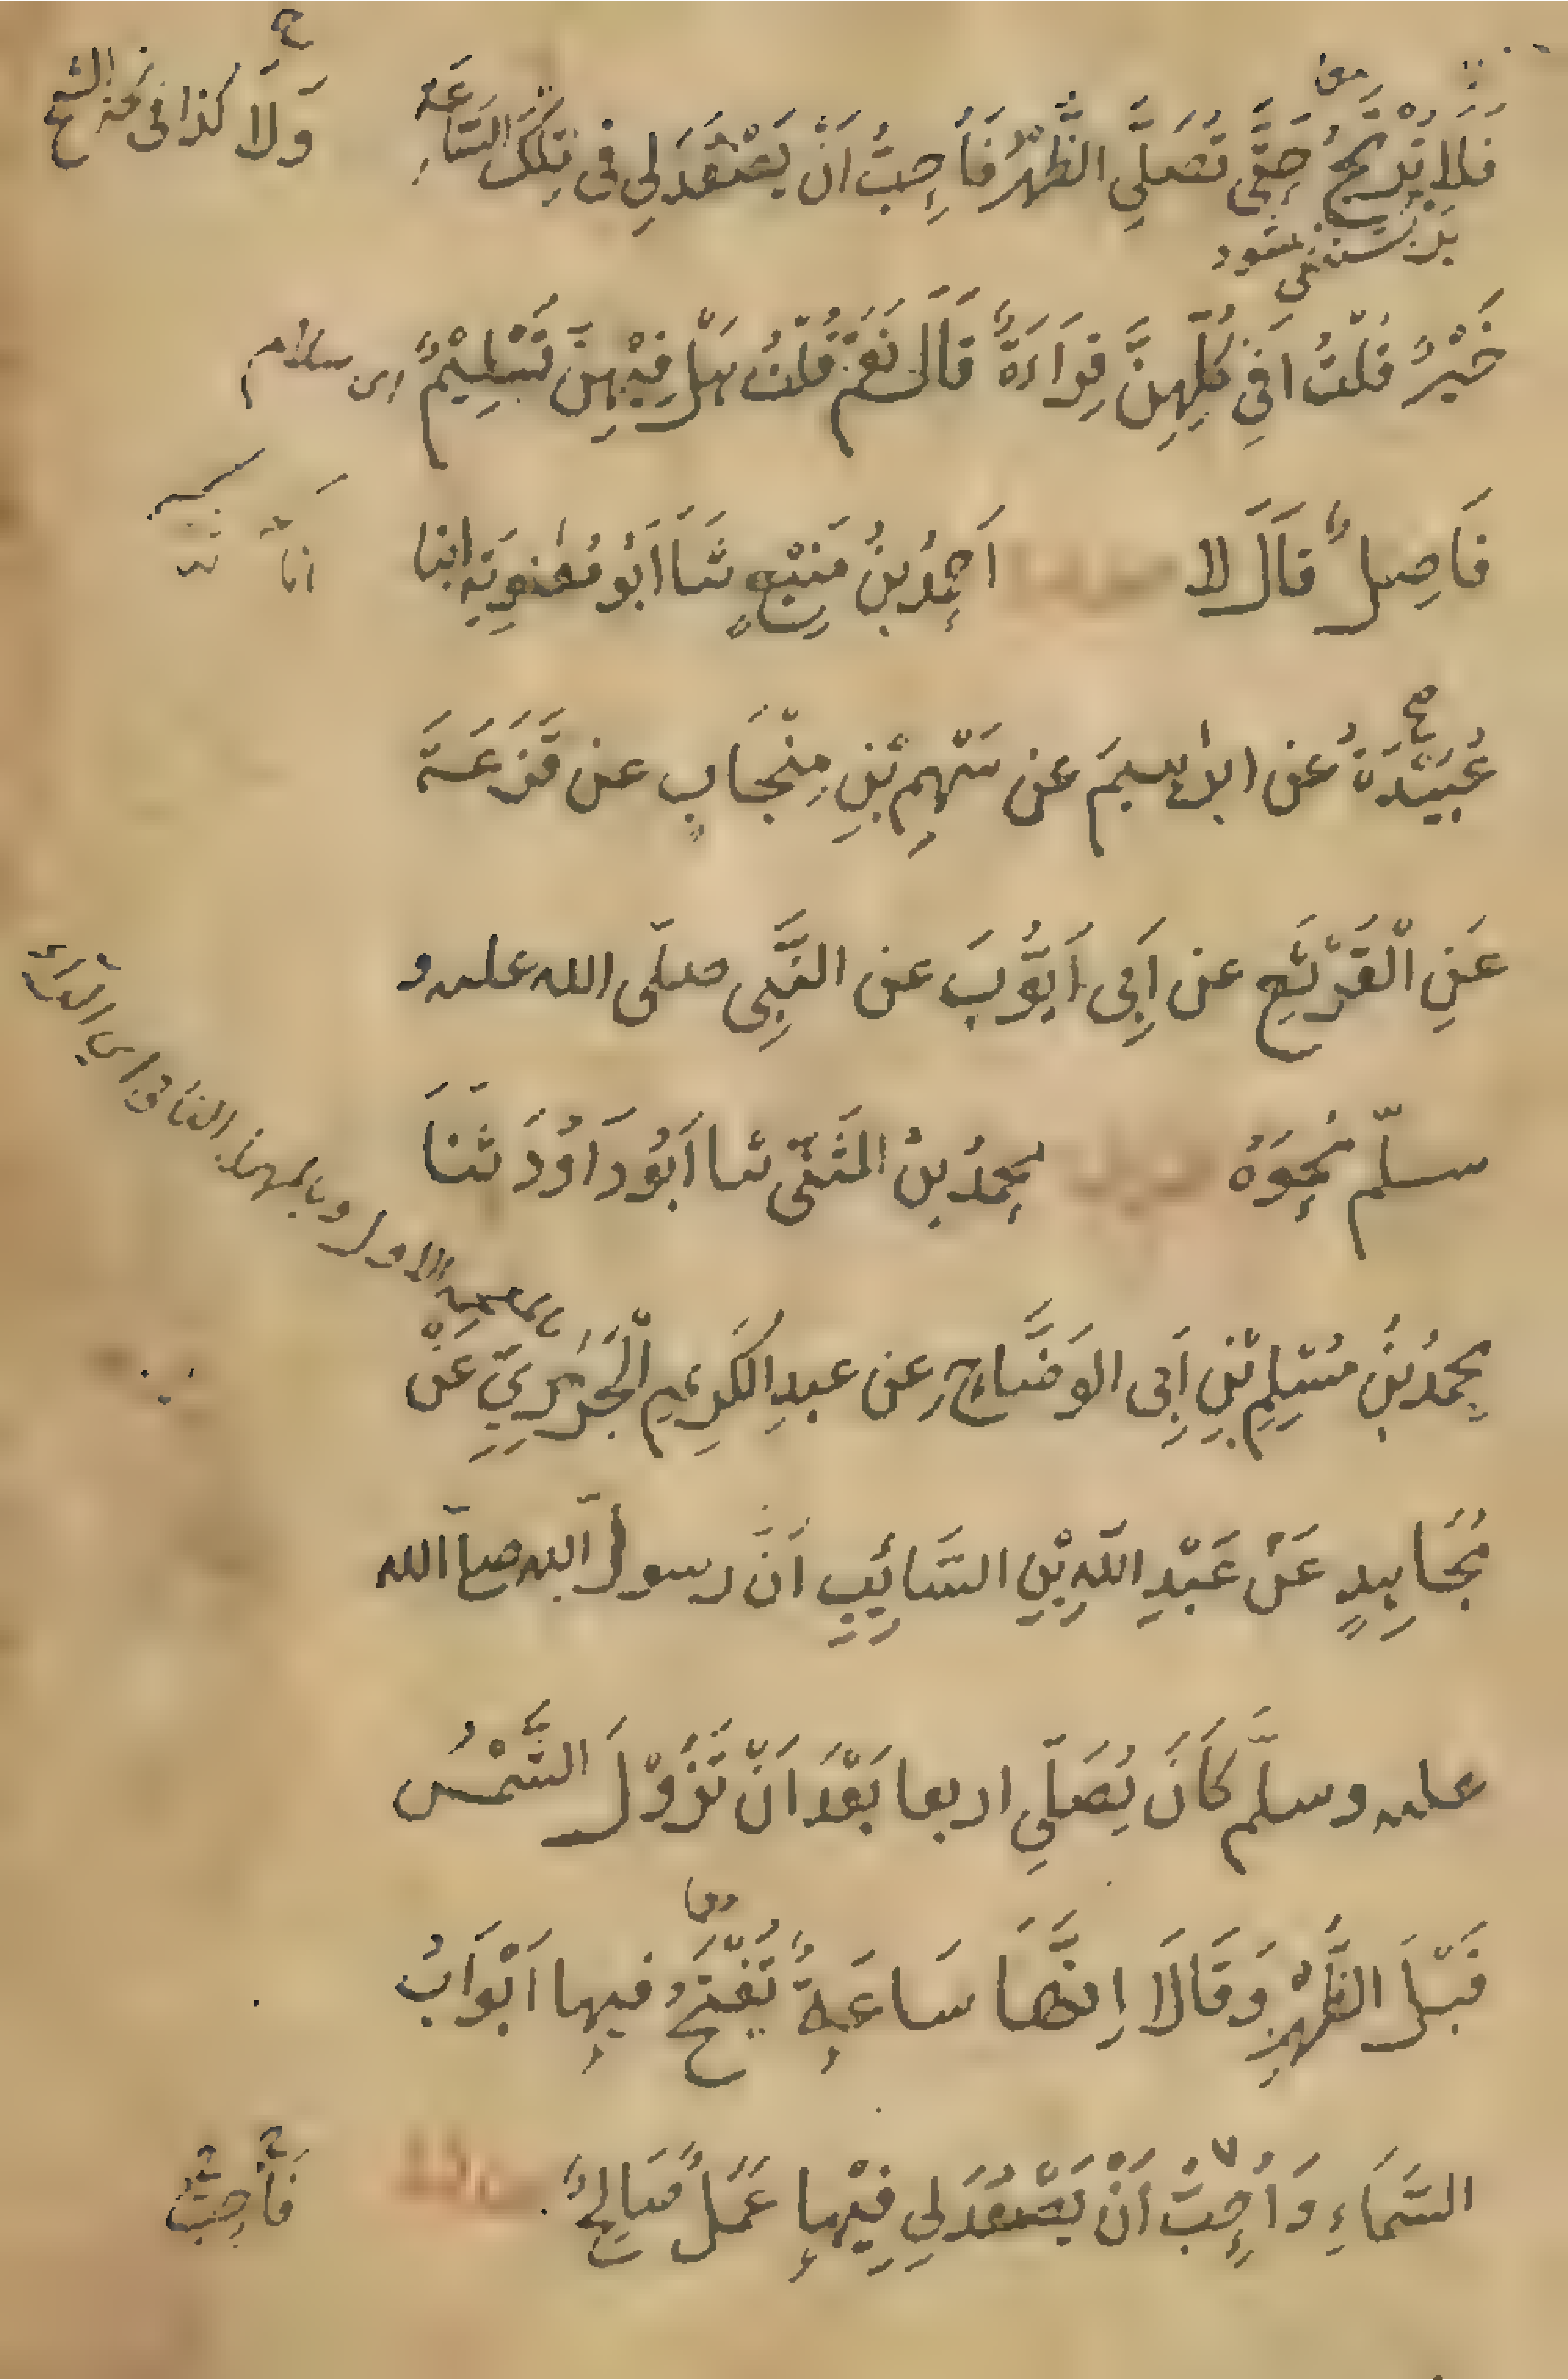 فَلَا تُرْتَجُ حَتَّى تُصَلَّى الظُّهْرُ فَأُحِبُّ اَنْ يَصْعَدَ لِى فِى تِلْكَ السَّاعَةِ
وَلَا كذا فى
خَيْرٌ قُلْتُ اَفِى كُلِّهِنَّ قِرَاءَةٌ قَالَ نَعَمْ قُلْتُ هَلْ فِيْهِنَّ تَسْلِيْمٌ
اى سلام
فَاصِلٌ قَالَ لا اَحمدُ بنُ مَنِيْعٍ ثَنَا اَبُو مُعٰوِيَةِ ابنا
انا
عُبَيْدَةُ عن ابرٰهيمَ عن سَهْمِ بْنِ مِنْجَابٍ عن قَزَعَةَ
عَنِ الْقَرْثَعِ عن اَبِى اَيُّوبَ عن النَّبِى صلّى الله عليه و
سلّم نَحوَهُ محمدُ بنُ المُثَنّٰى ثنا اَبُو دَاوُدَ ثَنَا
محمدُ بْنُ مُسْلِمِ بْنِ اَبِى الوَضَّاحِ عن عبدِ الكَرِيمِ الْجَزَرِيِّ عَنْ
مُجَاهِدٍ عَنْ عَبْدِ اللّهِ بْنِ السَّائِبِ اَنَّ رسولَ الله صلى الله
عليه وسلّم كَانَ يُصَلِّى اربعا بَعْدَ اَنْ تَزُوْلَ الشَّمْسُ
قَبْلَ الظُّهْرِ وَقَالَ اِنَّهَا سَاعَةٌ تُفْتَحُ فيها اَبْوَابُ
السَّمَاءِ وَاُحِبُّ اَنْ يَصْعَدَ لِى فِيْهَا عَمَلٌ صَالِحٌ
فَأُحِبُّ